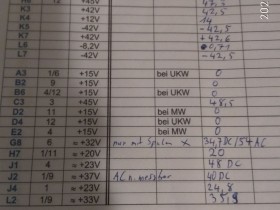 +45V 47,5
K3 +42V 47,5
K4 +12V 14
K5 -42V -42,5
K7 +42V +42,6
L6 -8,2V
L7 -42V -42,5
A3 1/6 +15V bei UKW 0
B2 9 +15V 0
B6 4/12 +15V bei UKW 0
C3 3 +45V 48,5
D2 11 +15V bei MW 0
D4 12 +15V 0
E2 4 +15V bei MW 0
G6 6 ≈ +32V nur mit Spulen x 34,7DC/54AC
H7 1/11 ≈ +20V 20
J1 4 ≈ +23V 48 DC
J2 1/9 ≈ +37V AC n. messbar 40DC
J4 1 ≈ +23V 24,8
L2 1/9 ≈ +33V 35,9